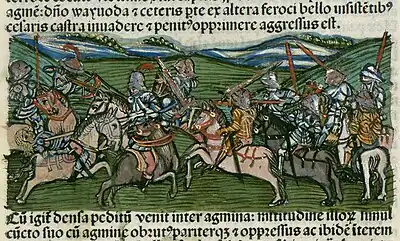 agmē: dño wayuoda ⁊ ceteris pte ex altera feroci bello insistētibꝰ
cesaris castra inuadere ⁊ penitꝰ opprimere aggressus est.
Cū igit densa peditū venit inter agmina: mltitudine illoꝝ simul
cūcto suo cū agmine obrutꝰ pariterqꝫ ⁊ oppressus ac ibidē